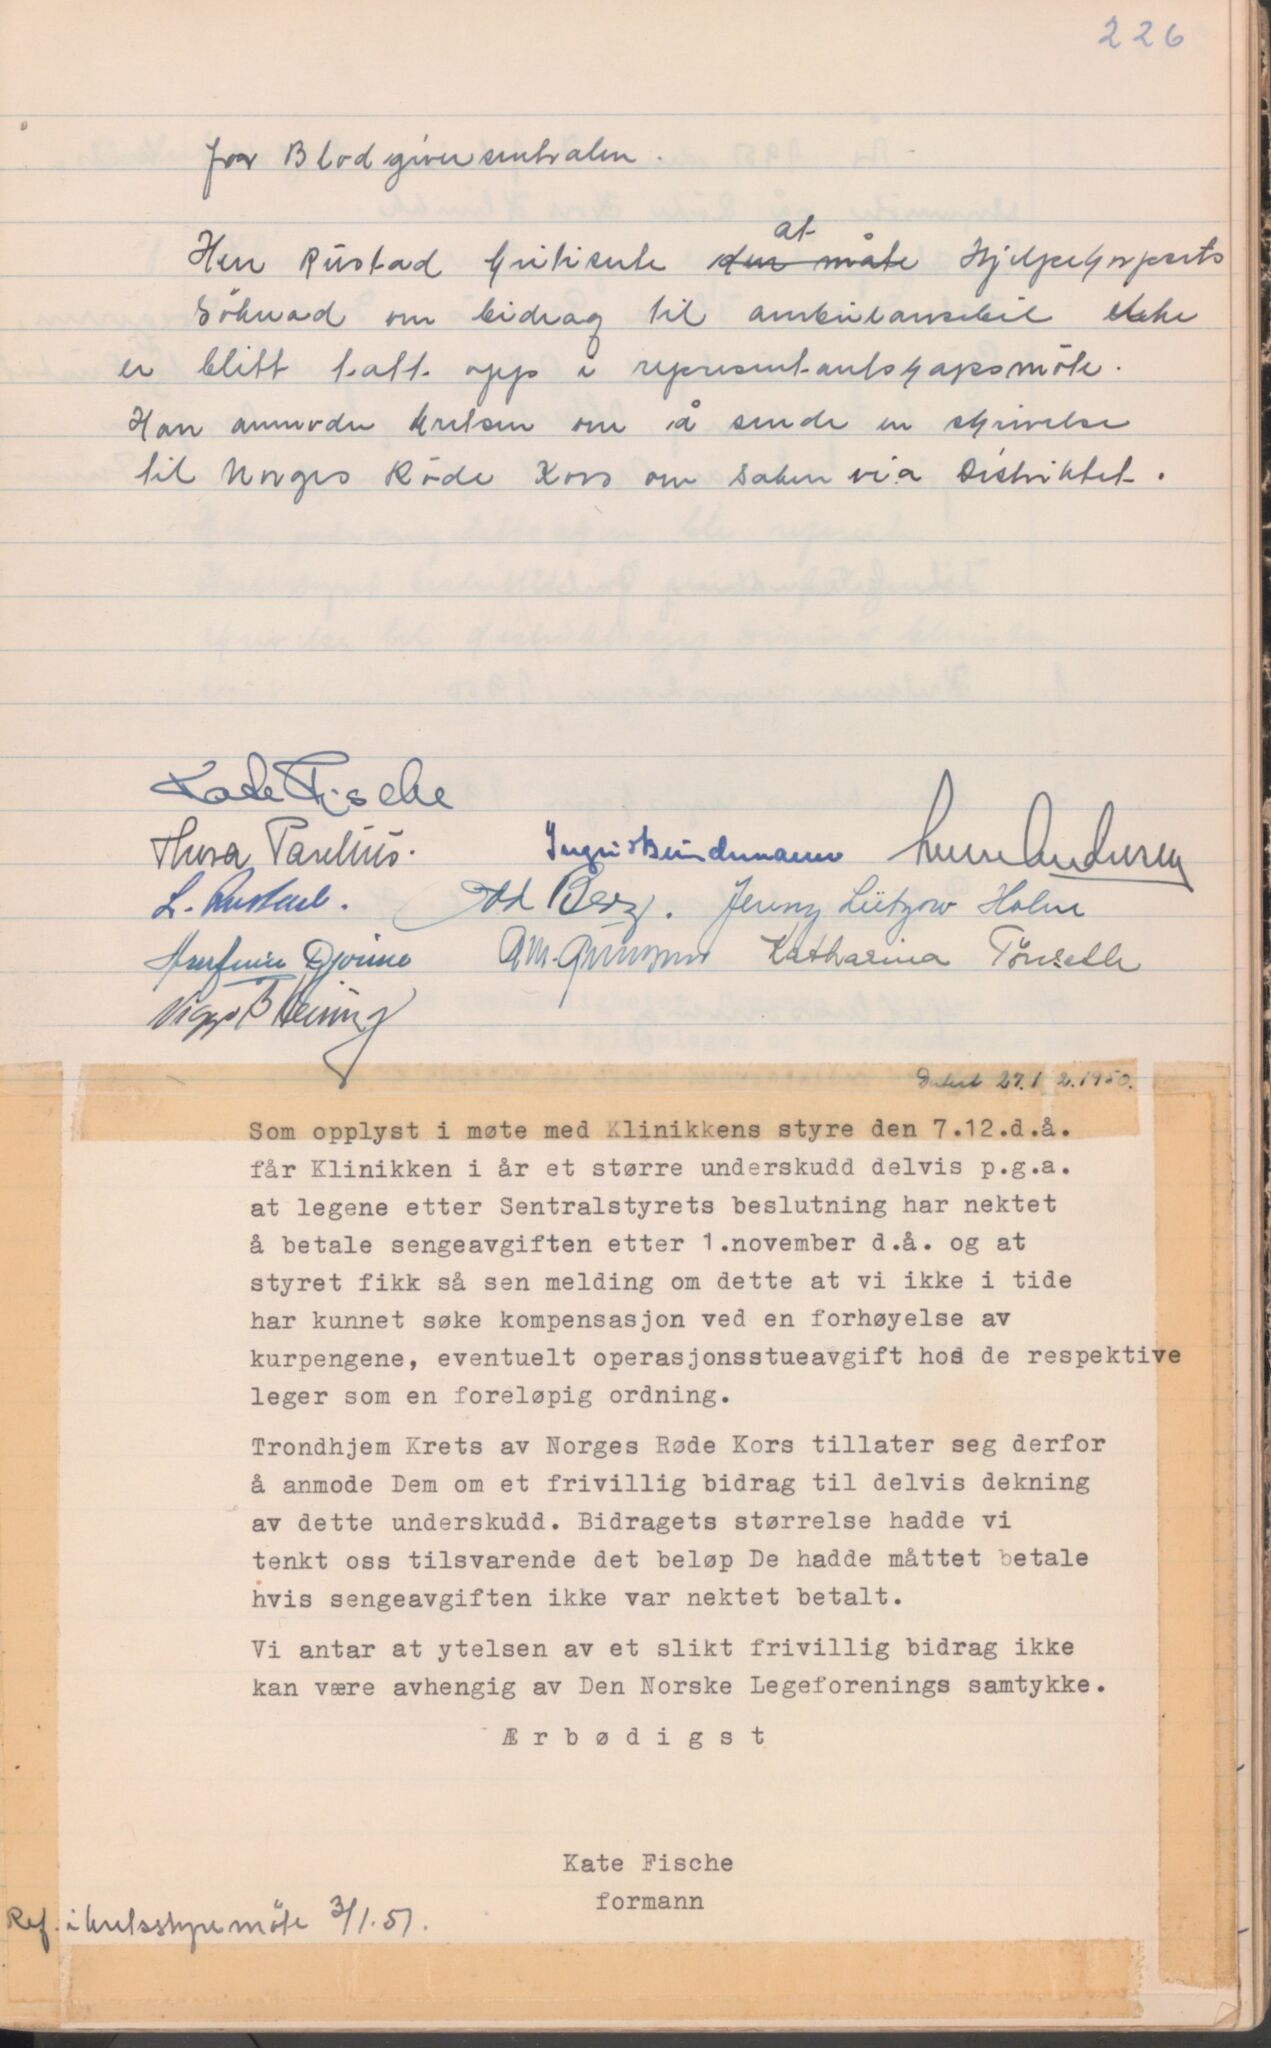 226
for Blodgiversentralen.
Herr Rustad kritiserte den måte at Hjelpekorpsets
Söknad om bidrag til ambulansebil ikke
er blitt tatt opp i representantskapsmöte.
Han anmoder kretsen om å sende en skrivelse
til Norges Röde Kors om saken via Distriktet.
Kate Fische
Thora Parelius. Ingrid Bindemann
L. Rustad. Odd Berg. Jenny Lützow Holm
Djorine Katharina Tönseth
Viggo B
Datert 27.12.1950.
Som opplyst i møte med Klinikkens styre den 7.12.d.å.
får Klinikken i år et større underskudd delvis p.g.a.
at legene etter Sentralstyrets beslutning har nektet
å betale sengeavgiften etter 1.november d.å. og at
styret fikk så sen melding om dette at vi ikke i tide
har kunnet søke kompensasjon ved en forhøyelse av
kurpengene, eventuelt operasjonsstueavgift hos de respektive
leger som en foreløpig ordning.
Trondhjem Krets av Norges Røde Kors tillater seg derfor
å anmode Dem om et frivillig bidrag til delvis dekning
av dette underskudd. Bidragets størrelse hadde vi
tenkt oss tilsvarende det beløp De hadde måttet betale
hvis sengeavgiften ikke var nektet betalt.
Vi antar at ytelsen av et slikt frivillig bidrag ikke
kan være avhengig av Den Norske Legeforenings samtykke.
Ærbødigst
Kate Fische
formann
Ref. i kretsstyremöte 3/1.51.